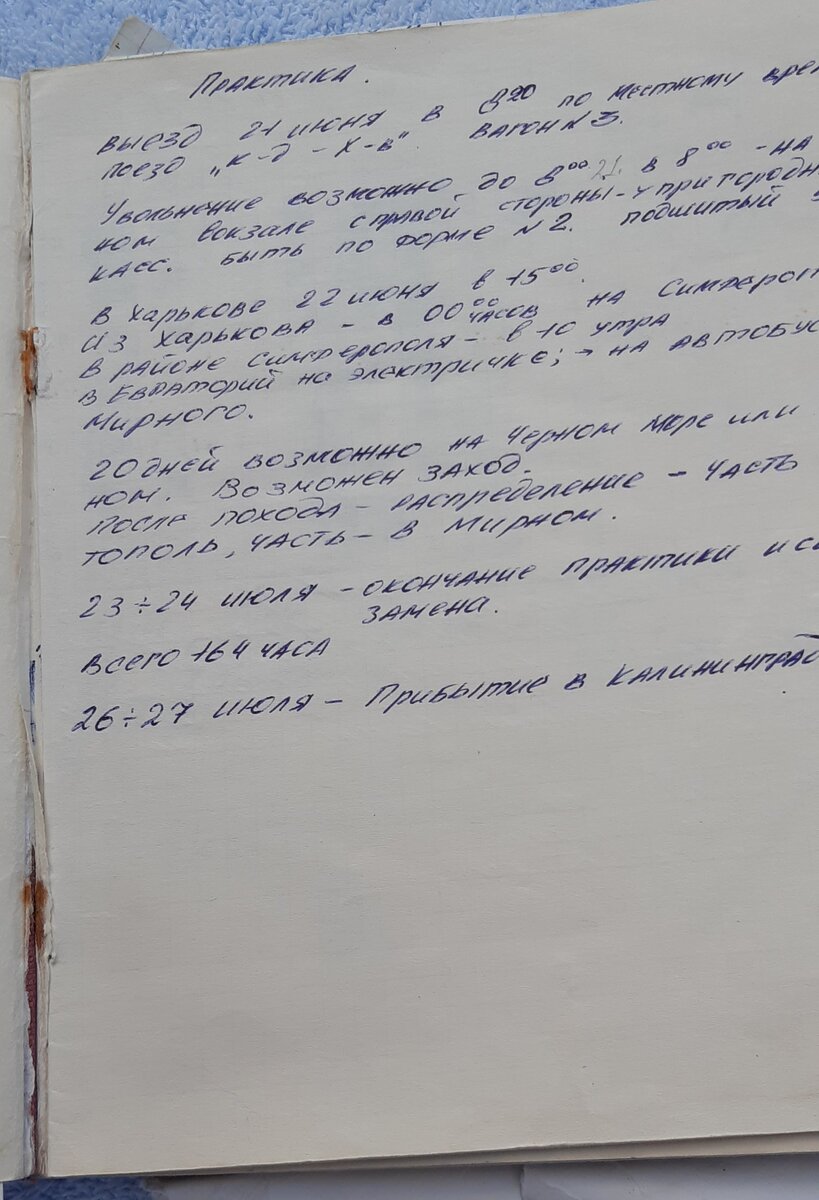 Практика.
выезд 21 июня в 8²⁰ по местному врем
поезд „К-д – Х-в". вагон N 3.
Увольнение возможно до 8⁰⁰ 21. в 8⁰⁰ - на
ном вокзале с правой стороны - у пригородн
касс. быть по форме N 2. подшитый
в Харькове 22 июня в 15⁰⁰.
Из Харькова - в 00⁰⁰ часов на Симфероп
в районе Симферополя - в 10 утра
в Евпаторий на электричке; → на автобус
Мирного.
20 дней возможно на Черном море или
ном. Возможен заход.
После похода - распределение - часть
тополь, часть - в Мирном.
23÷24 июля - окончание практики и с
замена.
Всего 164 часа
26÷27 июля - Прибытие в Калининград